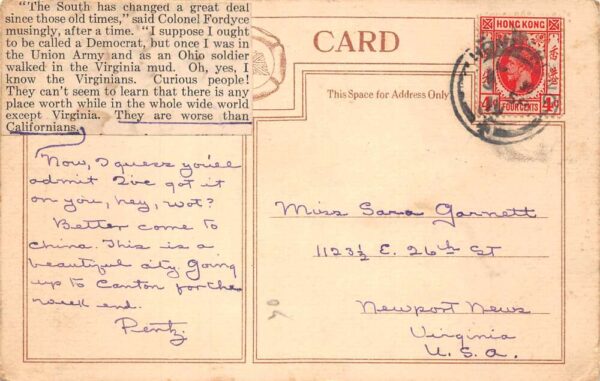 "The South has changed a great deal
since those old times," said Colonel Fordyce
musingly, after a time. "I suppose I ought
to be called a Democrat, but once I was in
the Union Army and as an Ohio soldier
walked in the Virginia mud. Oh, yes, I
know the Virginians. Curious people!
They can't seem to learn that there is any
place worth while in the whole wide world
except Virginia. They are worse than
Californians.
Now, I guess you'll
admit I've got it
on you, hey, wot?
Better come to
China. This is a
beautiful city. Going
up to Canton for the
end.
Pentz
CARD
This Space for Address Only
HONG KONG
香港
4c
FOUR CENTS
Miss Sara Garnett
1123½ E. 26th St
Newport News
Virginia
U. S. A.